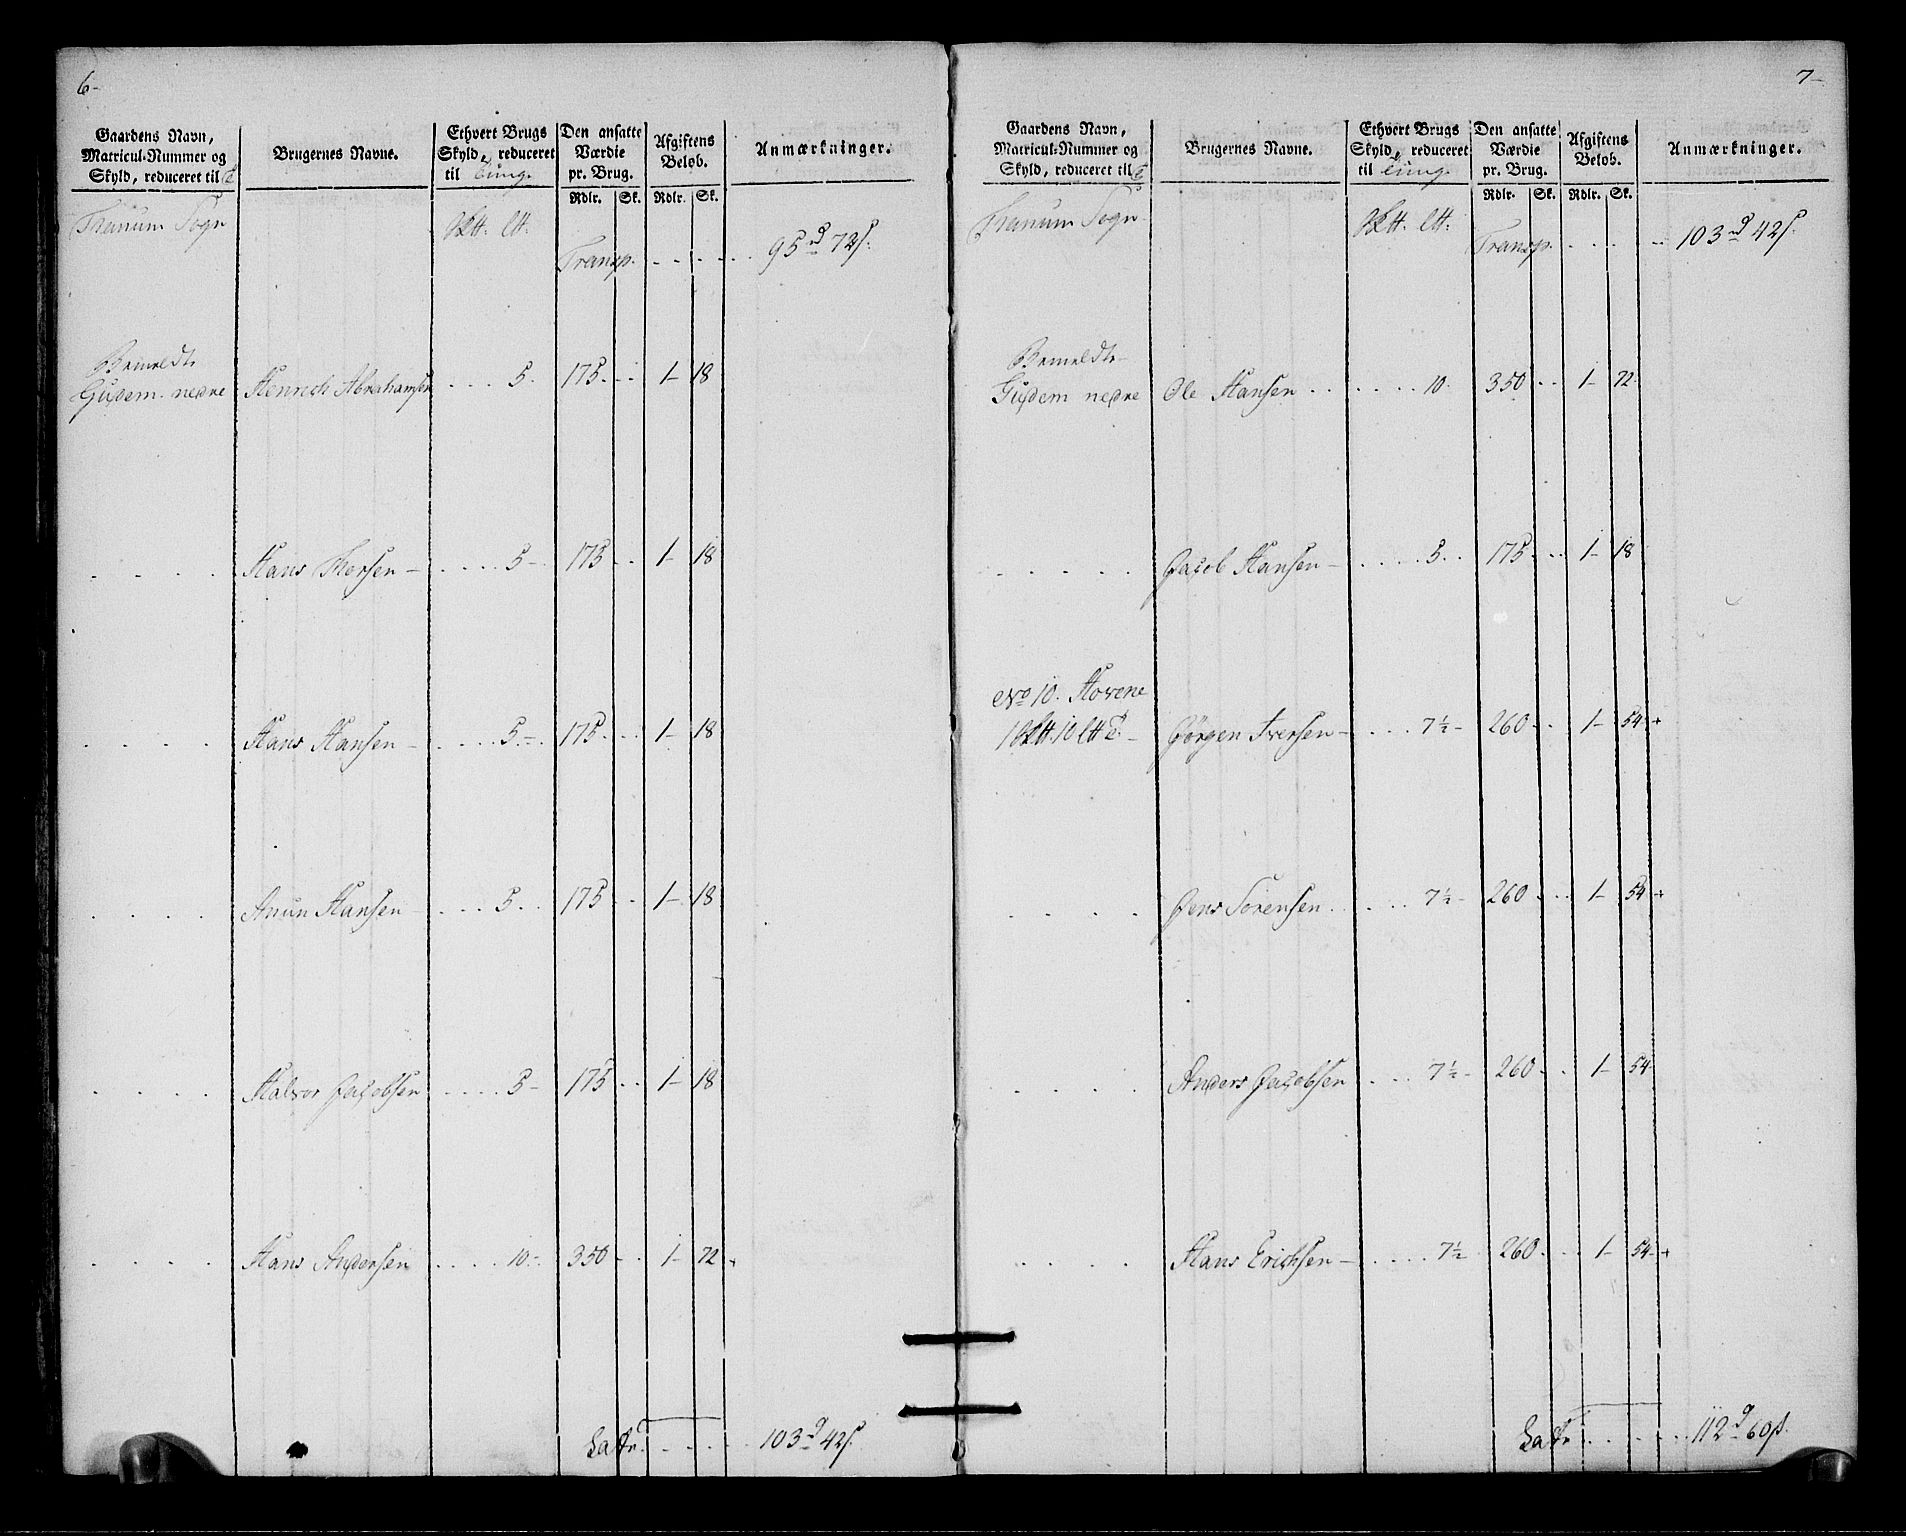 6-
Gaardens Navn,
Matricul-Nummer og
Skyld, reduceret til
Brugernes Navne.
Ethvert Brugs
Skyld, reduceret
til
Den ansatte
Værdie
pr. Brug.
Rdlr. Sk.
Afgiftens
Beløb.
Rdlr. Sk.
Anmærkninger.
Tranum Sogn
Transp. . . . . . 95 72
Bemeldte
Gusdem nedre Henrich Abrahamsen . . . 5. 175. . . 1- 18
. . . . Hans Thersen - . . . . 5- 175 . . 1- 18
. . . . Hans Hansen - . . . . 5- 175. . . 1- 18
. . . . Anun Hansen - . . . . 5. . 175 . . 1- 18
. . . . Halvor Jacobsen . . . . 5- 175 . . 1- 18
. . . . Hans Andersen . . . . 10- 350 - . 1- 72
Latr. . . . . . 103 42
7-
Gaardens Navn,
Matricul-Nummer og
Skyld, reduceret til
Brugernes Navne.
Ethvert Brugs
Skyld, reduceret
til
Den ansatte
Værdie
pr. Brug.
Rdlr. Sk.
Afgiftens
Beløb.
Rdlr. Sk.
Anmærkninger.
Tranum Sogn
Transp. . . . . . 103 42
Bemeldte
Gusdem nedre Ole Hansen . . . . . . 10. 350 . . 1- 72
. . . . . Jacob Hansen - . . . . 5. . 175 . . . 1- 18
No 10. Hovene
Jørgen Iversen - . . . 7½- 260 . . 1- 54
. . . . Jens Sørensen . . . . . 7½- 260 . . . 1- 54
. . . . Anders Jacobsen . . . 7½- 260 . . . 1- 54
. . . . Hans Erichsen - . . . . 7½ 260 . . . 1- 54
Latr . . . . . 112 60